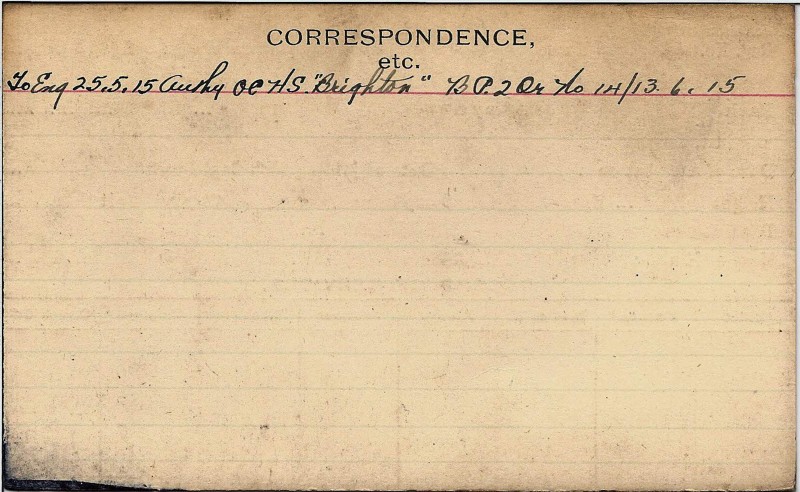 CORRESPONDENCE,
etc.
To Eng 25.5.15 Authy OC H.S. "Brighton" B P.2 Or No 14/13.6.15